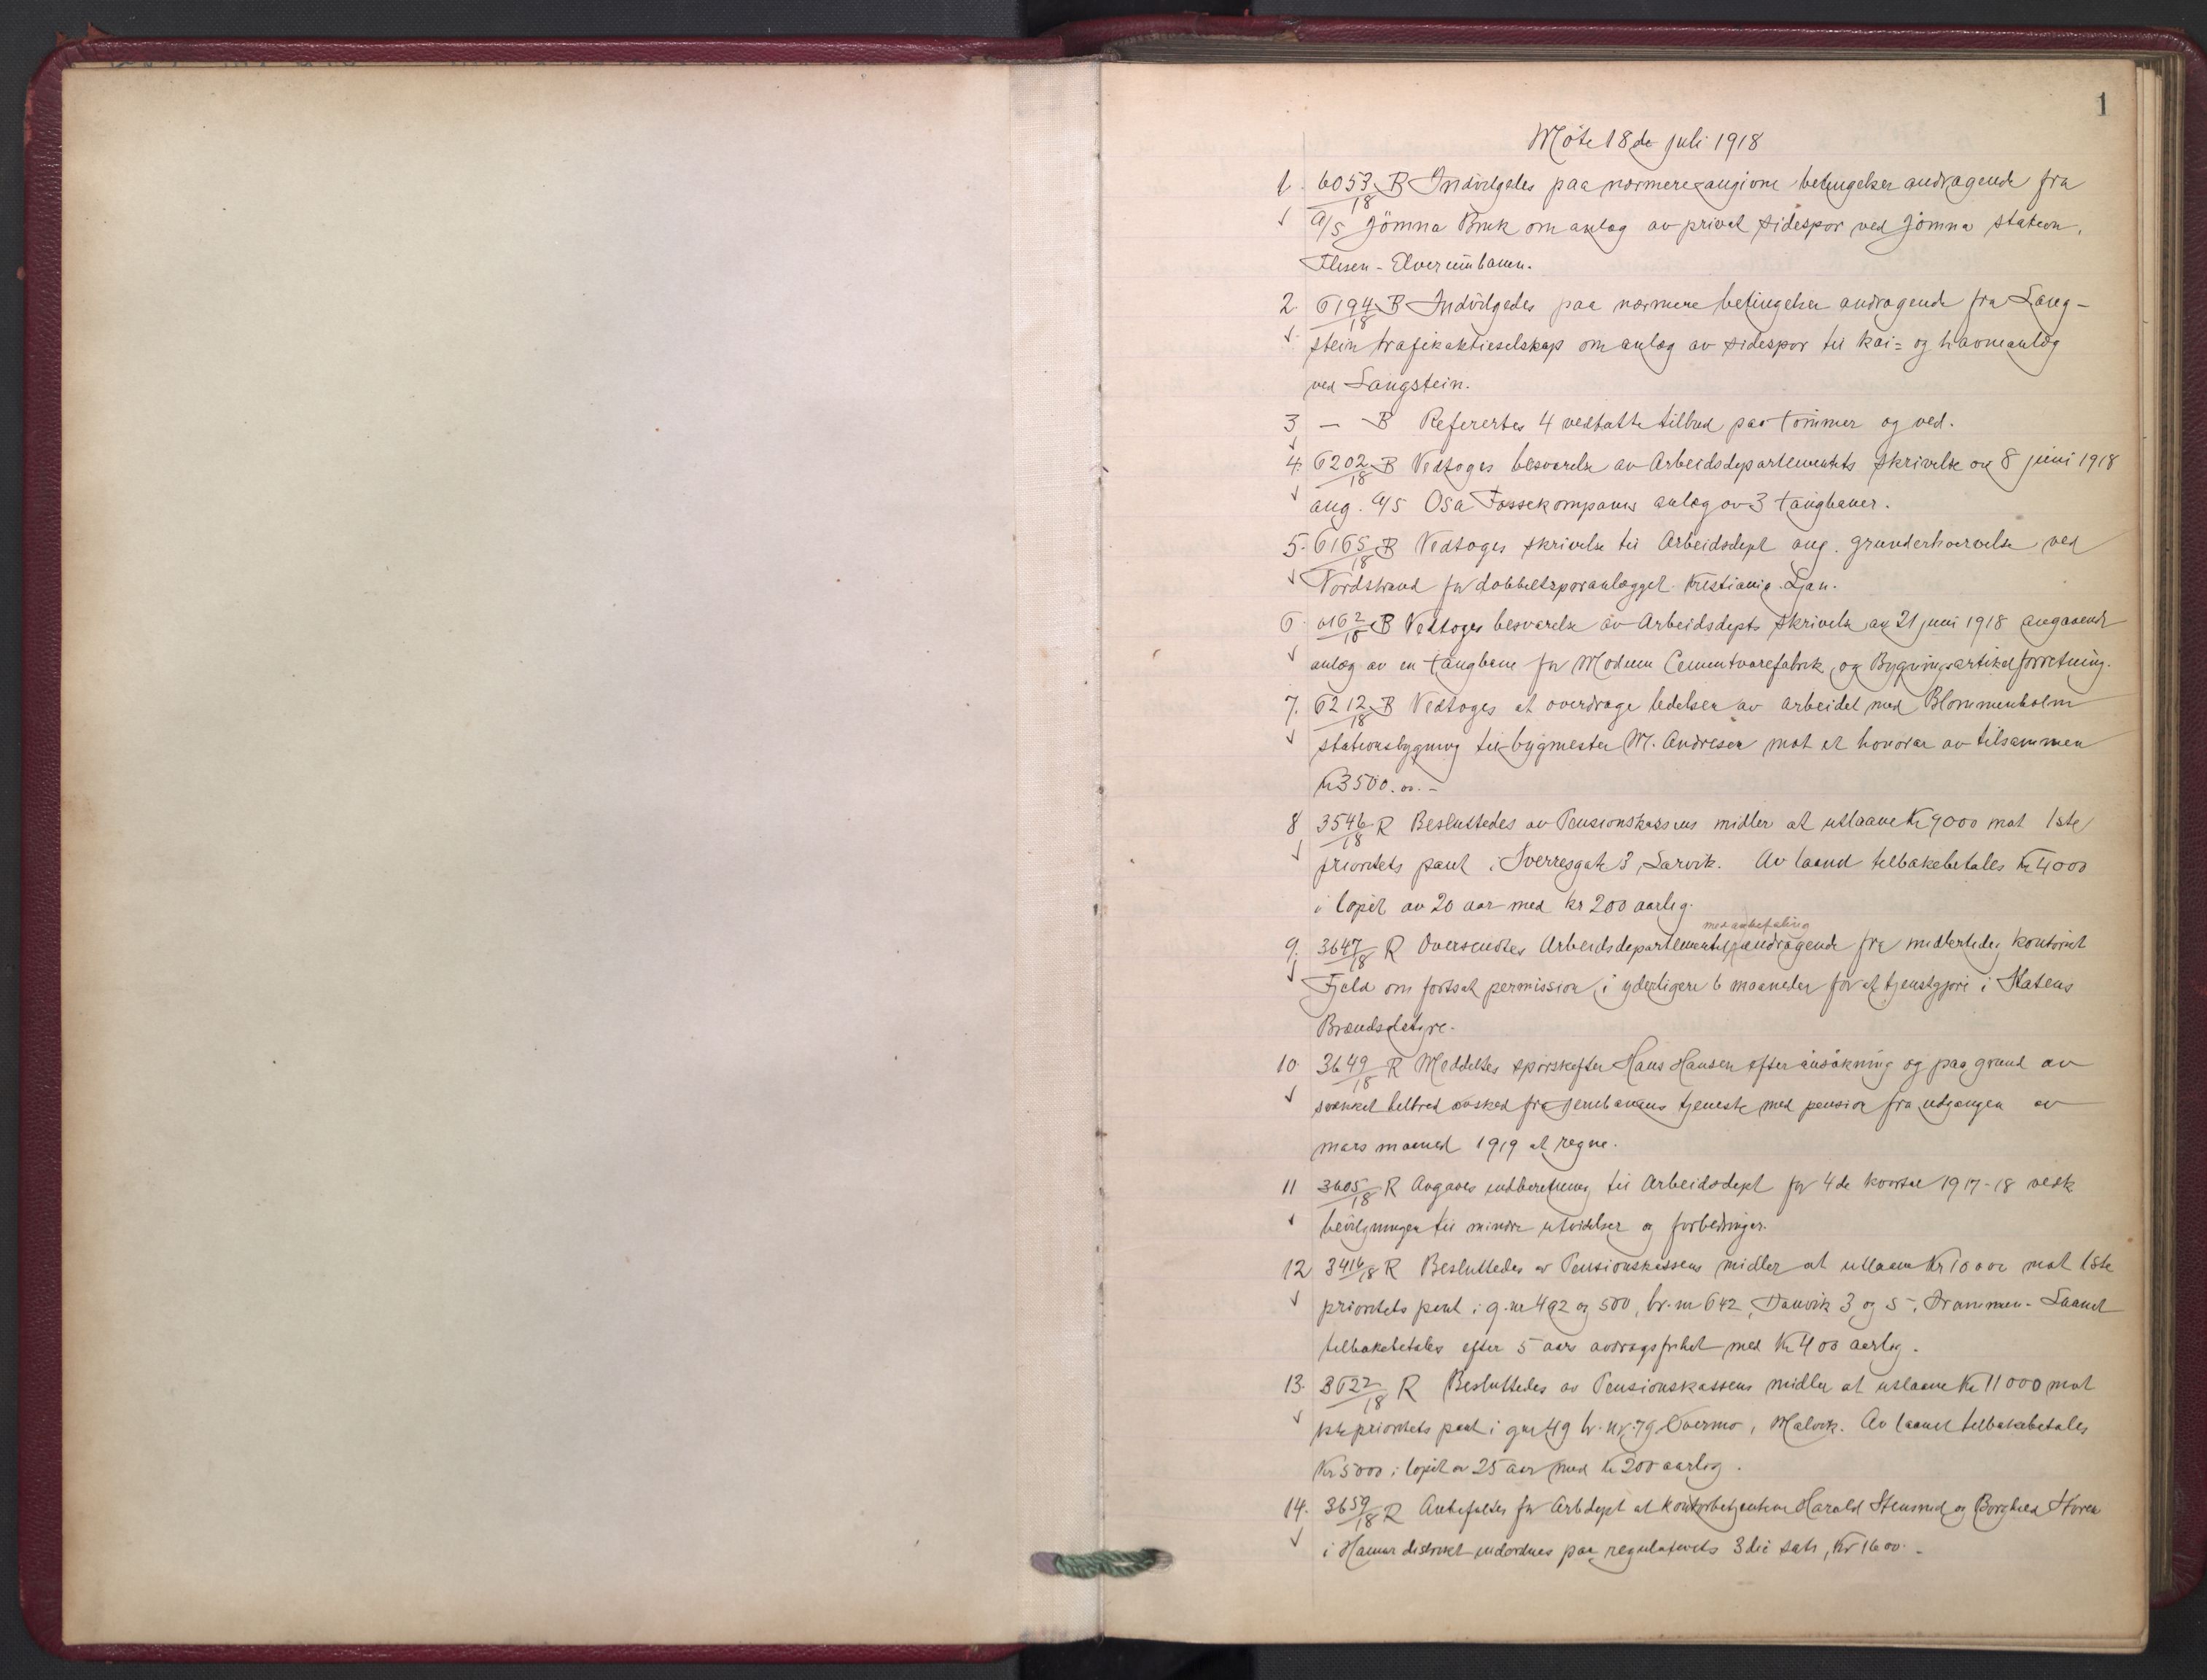 1
Møte 18de juli 1918
1. 6053/18 B Indvilgedes paa nærmere angivne betingelser andragende fra
A/S Jömna Bruk om anlæg av privat sidespor ved Jömna station,
Flisen-Elverumbanen.
2. 6194/18 B Indvilgedes paa nærmere betingelser andragende fra Lang-
stein trafikaktieselskap om anlæg av sidespor til kai= og havneanlæg
ved Langstein.
3 — B Referertes 4 vedtatte tilbud paa tömmer og ved.
4. 6202/18 B Vedtoges besvarelse av Arbeidsdepartementets skrivelse av 8 juni 1918
ang. A/S Osa Fossekompanis anlæg av 3 taugbaner.
5. 6165/18 B Vedtoges skrivelse til Arbeidsdept ang. grunderhvervelse ved
Nordstrand for dobbeltsporanlægget Kristiania-Ljan.
6. 6162/18 B Vedtoges besvarelse av Arbeidsdepts skrivelse av 21 juni 1918 angaaende
anlæg av en taugbane for Modum Cementvarefabrik og Bygningsartikelforretning.
7. 6212/18 B Vedtoges at overdrage ledelsen av arbeidet med Blommenholm
stationsbygning til bygmester M. Andresen mot et honorar av tilsammen
kr 3500.00.-
8 3546/18 R Besluttedes av Pensionskassens midler at utlaane Kr 9000 mot 1ste
prioritets pant i Sverresgate 3, Larvik. Av laanet tilbakebetales Kr 4000
i löpet av 20 aar med kr 200 aarlig.
9. 3647/18 R Oversendtes Arbeidsdepartementet med anbefaling andragende fra midlertidig kontorist
Fjeld om fortsat permission i yderligere 6 maaneder for at tjenstgjöre i Statens
Brændselstyre.
10 3649/18 R Meddeltes sporskifter Hans Hansen efter ansökning og paa grund av
svækket helbred avsked fra jernbanens tjeneste med pension fra utgangen av
mars maaned 1919 at regne.
11 3605/18 R Avgaves indberetning til Arbeidsdept for 4de kvartal 1917-18 vedk
bevilgningen til mindre utvidelser og forbedringer.
12 3416/18 R Besluttedes av Pensionskassens midler at utlaane Kr 10000 mot 1ste
prioritets pant i g.nr 492 og 500, br.nr 642, Danvik 3 og 5, Drammen. Laanet
tilbakebetales efter 5 aars avdragsfrihet med Kr 400 aarlig.
13. 3622/18 R Besluttedes av Pensionskassens midler at utlaane Kr 11000 mot
1ste prioritets pant i gnr 49 br.nr. 79 Overmo, Malvik. Av laanet tilbakebetales
Kr 5000 i löpet av 25 aar med Kr 200 aarlig.
14. 3659/18 R Anbefaltes for Arbdept at kontorbetjentene Harald Stensrud og Borghild Storen
i Hamar distrikt indordnes paa regulativets 3die sats, Kr 1600.-